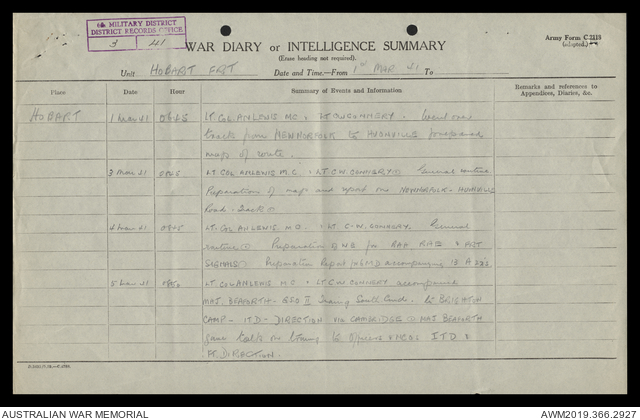 6th MILITARY DISTRICT
DISTRICT RECORDS OFFICE
3 41
WAR DIARY or INTELLIGENCE SUMMARY
(Erase heading not required).
Army Form C.2118
(adapted.)
Unit HOBART FRT Date and Time—From 1st MAR 41 To
Place Date Hour Summary of Events and Information Remarks and references to Appendices, Diaries, &c.
HOBART 1 Mar 41 0845 LT. COL AN LEWIS MC & LT CW CONNERY. Went over
tracks from NEW NORFOLK to HUONVILLE prepared
maps of route.
3 Mar 41 0845 LT. COL AN LEWIS M.C. & LT. C.W. CONNERY General routine
Preparation of maps and report on NEW NORFOLK - HUONVILLE
Road - Track
4 Mar 41 0845 LT. COL AN LEWIS MC. & LT C.W. CONNERY. General
routine Preparation for & FRT
SIGNALS Preparation Report
5 Mar 41 0850 LT. COL AN LEWIS M.C & LT C.W. CONNERY accompanied
MAJ. SEAFORTH - GSO II to BRIGHTON
CAMP - ITD - DIRECTION via CAMBRIDGE MAJ SEAFORTH
gave talks on to Officers ITD &
FT. DIRECTION.
AUSTRALIAN WAR MEMORIAL AWM2019.366.2927